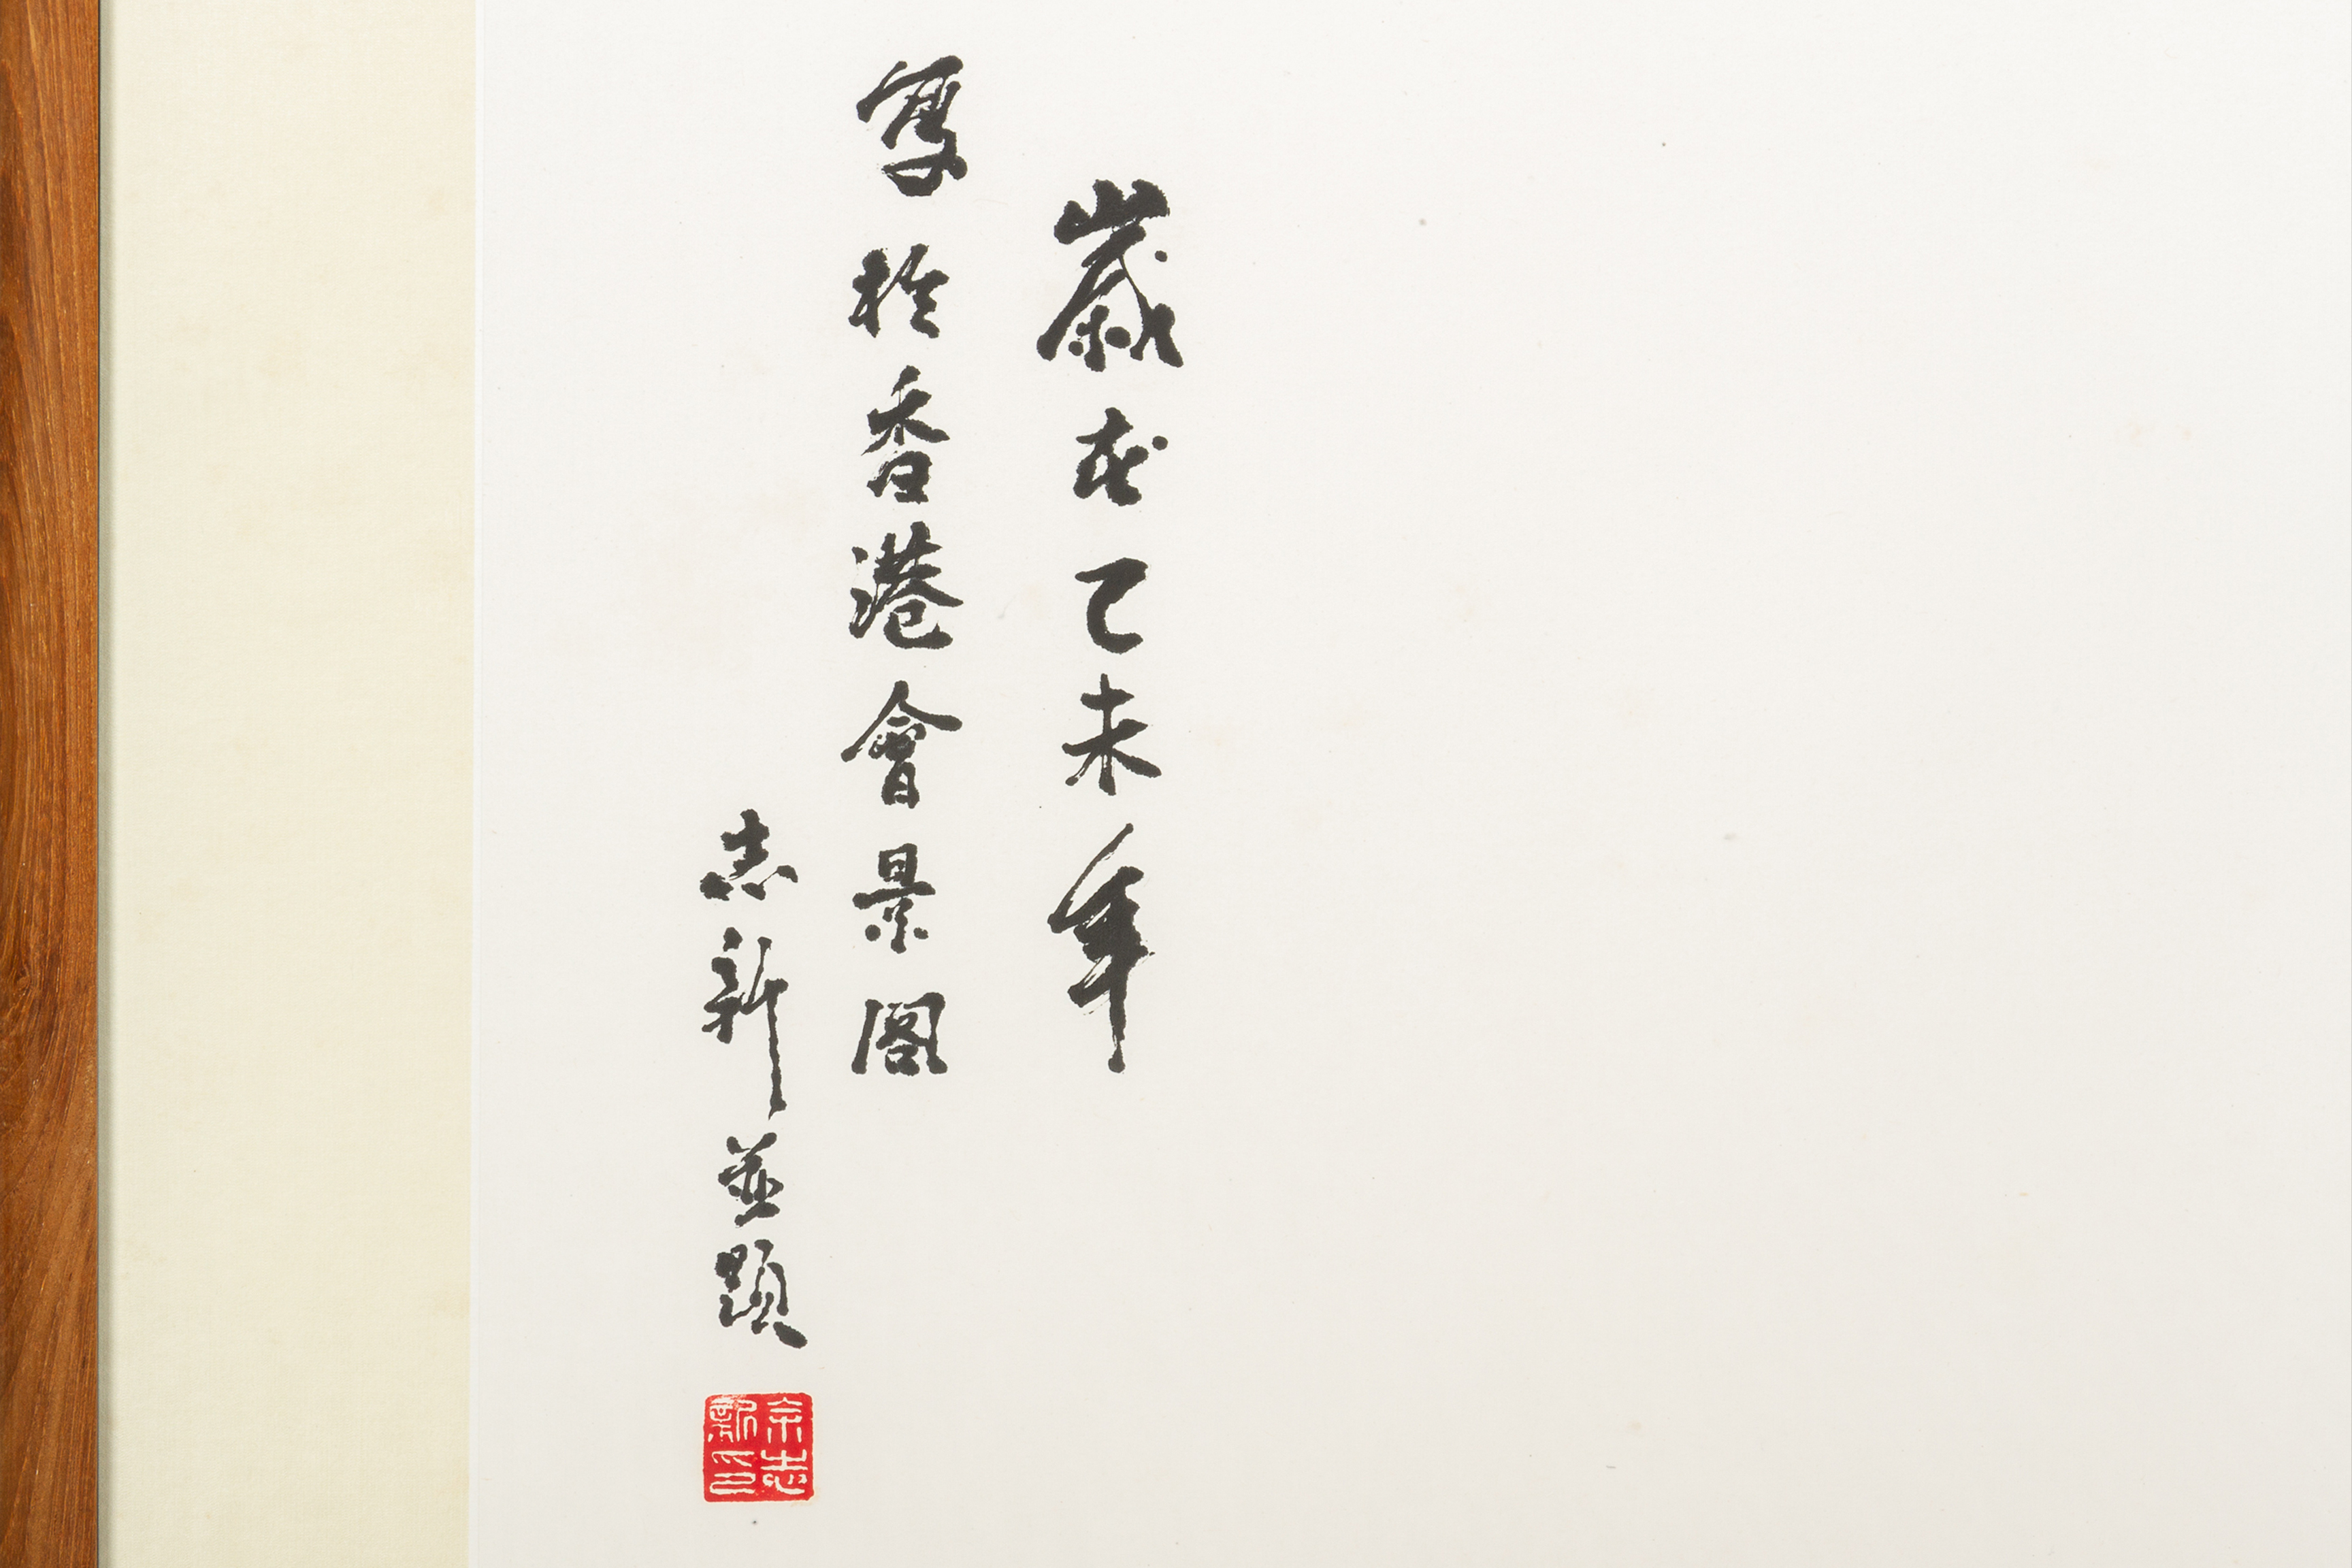 歲在乙未年
寫於香港會景閣
志新並題
余志新印